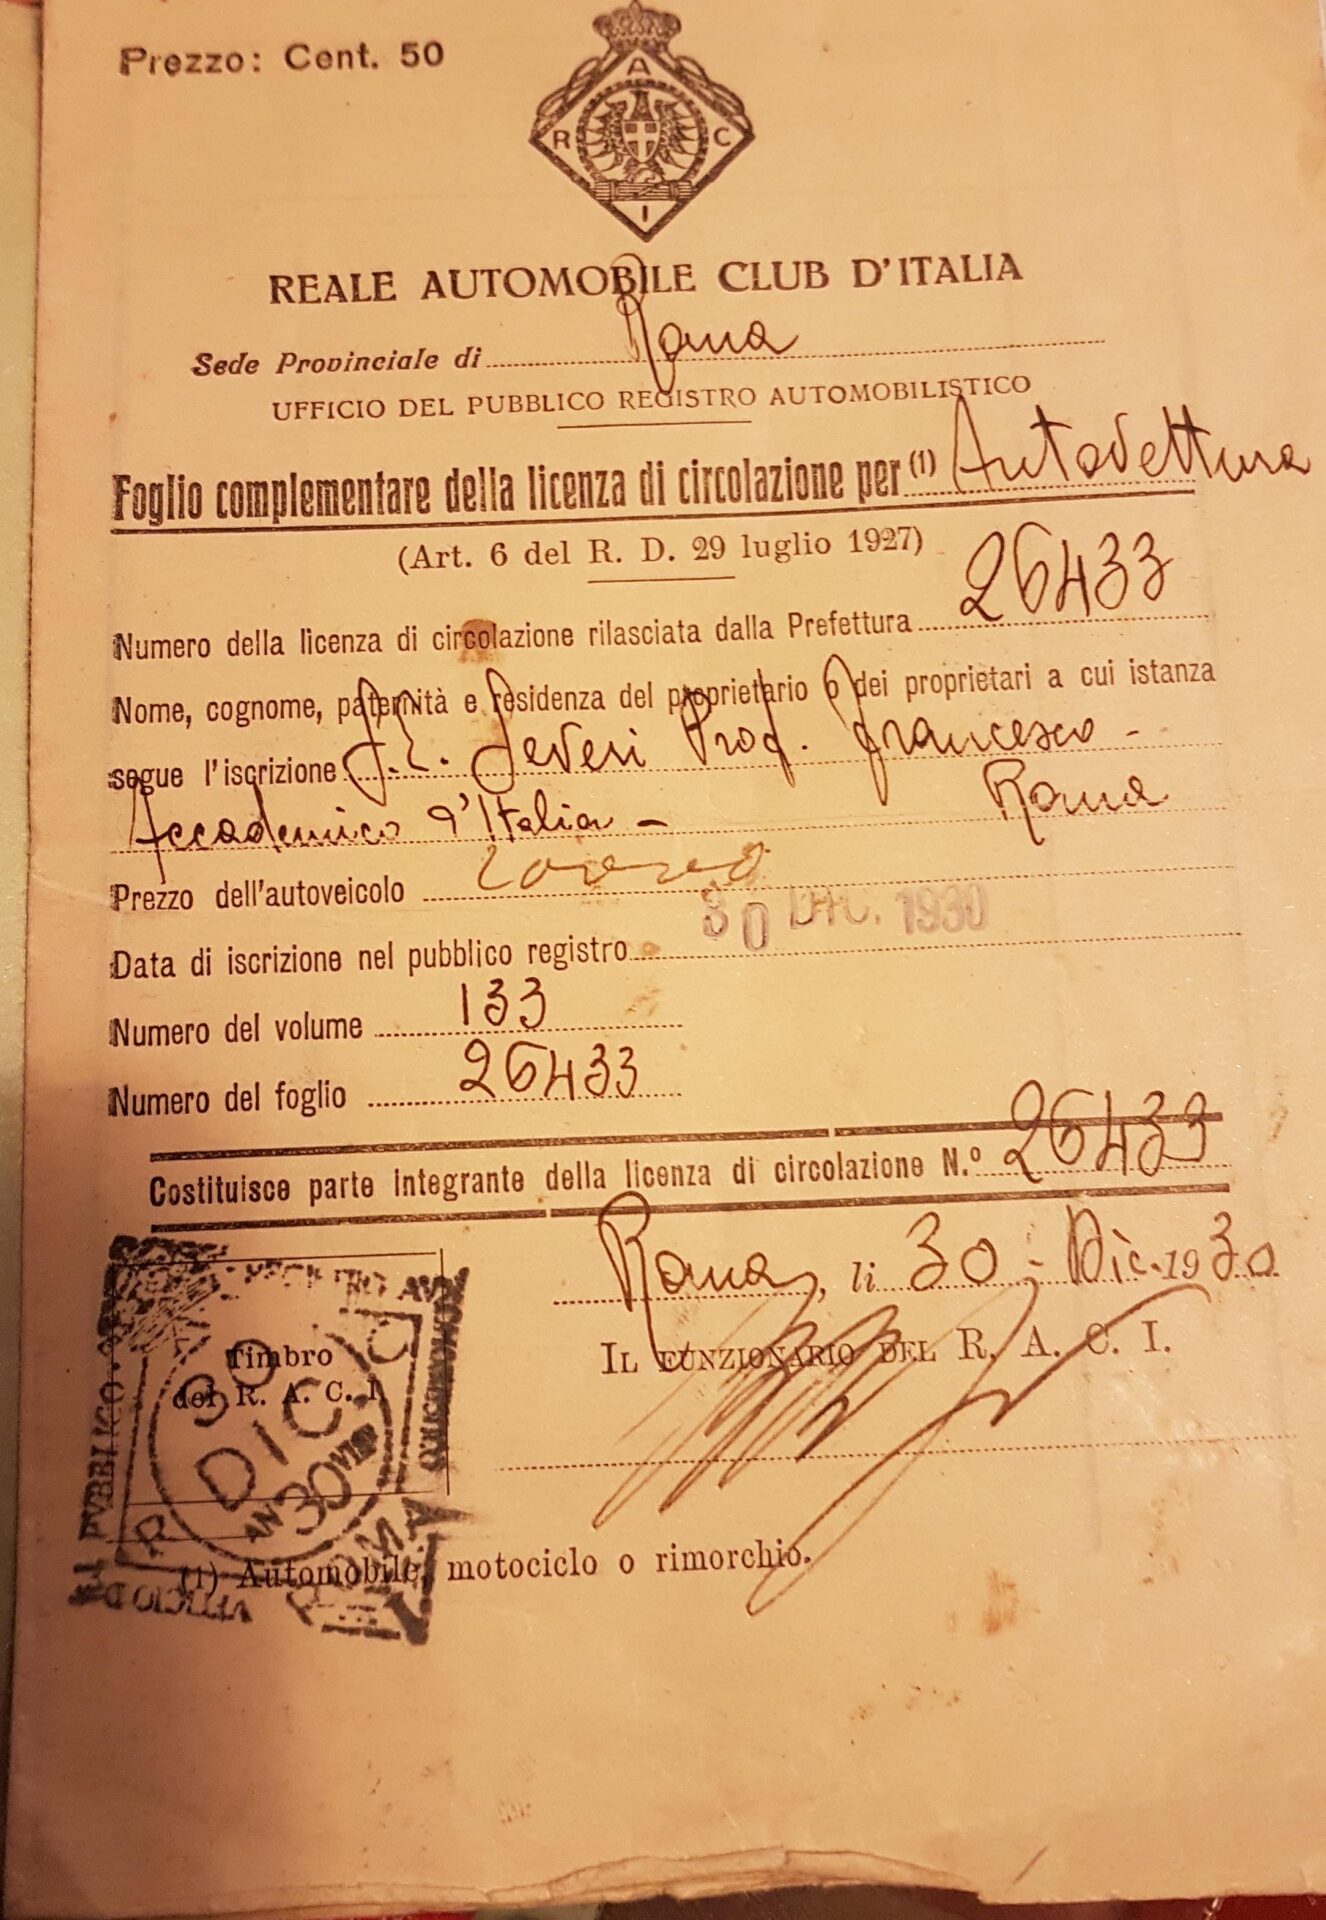 Prezzo: Cent. 50
A
R C
I
REALE AUTOMOBILE CLUB D'ITALIA
Sede Provinciale di Roma
UFFICIO DEL PUBBLICO REGISTRO AUTOMOBILISTICO
Foglio complementare della licenza di circolazione per (1) Autovettura
(Art. 6 del R. D. 29 luglio 1927)
Numero della licenza di circolazione rilasciata dalla Prefettura 26433
Nome, cognome, paternità e residenza del proprietario o dei proprietari a cui istanza
segue l'iscrizione S.E. Severi Prof. Francesco -
Accademico d'Italia - Roma
Prezzo dell'autoveicolo
Data di iscrizione nel pubblico registro 30 DIC. 1930
Numero del volume 133
Numero del foglio 26433
Costituisce parte integrante della licenza di circolazione N.° 26433
Roma, li 30 - Dic. 1930
IL FUNZIONARIO DEL R. A. C. I.
Timbro
del R. A. C. I.
30
DIC.
AN 30
PUBBLICO
ROMA
(1) Automobile, motociclo o rimorchio.